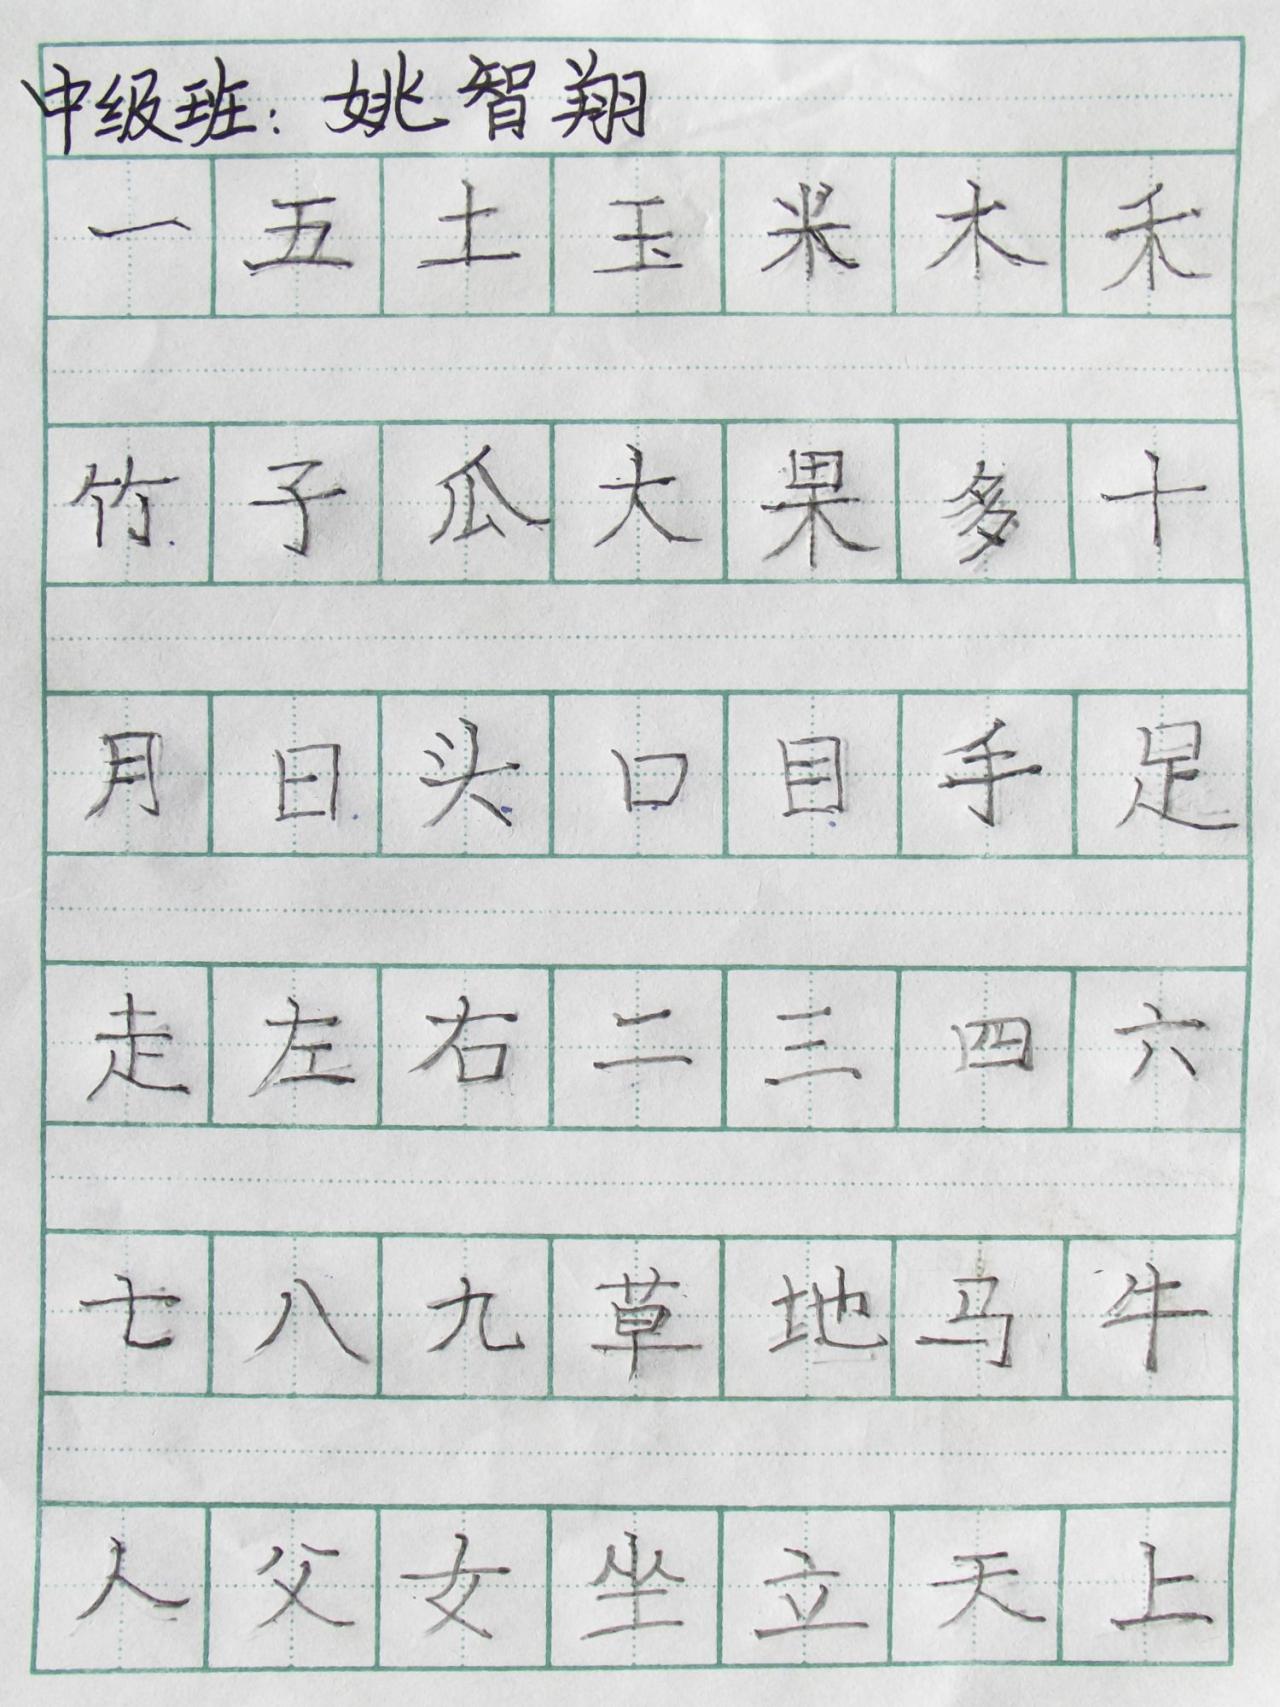 中级班：姚智翔
一五土玉米木禾
竹子瓜大果多十
月日头口目手足
走左右二三四六
七八九草地马牛
人父女坐立天上